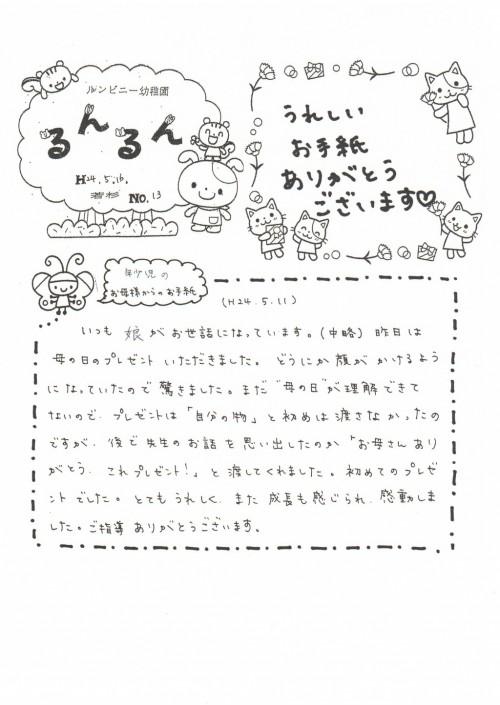 ルンビニー幼稚園
るんるん
H24.5.16.
若杉 No.13
うれしい
お手紙
ありがとう
ございます♡
幼児の
お母様からのお手紙
(H24.5.11)
いつも 娘がお世話になっています。(中略) 昨日は
母の日のプレゼント いただきました。 どうにか顔が かけるよう
になっていたので 驚きました。まだ “母の日”が理解できて
ないので、プレゼントは「自分の物」と初めは渡さなかったの
ですが、後で先生のお話を思い出したのか「お母さんあり
がとう、これプレゼント!」と渡してくれました。初めてのプレゼ
ントでした。とてもうれしく、また成長も感じられ、感動しま
した。ご指導 ありがとうございます。